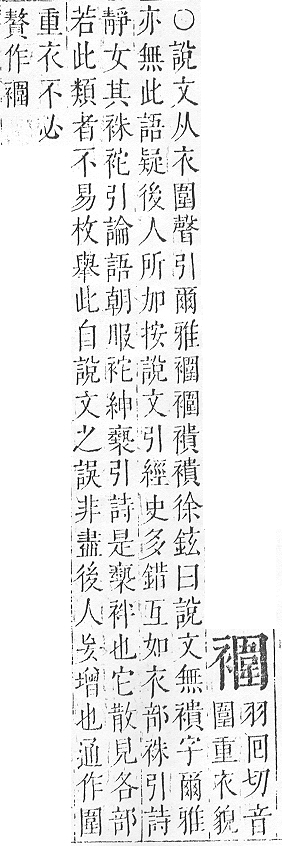 襘羽回切音
圍重衣貌
○說文从衣圍聲引爾雅襘襘襀襀徐鉉曰說文無襀字爾雅
亦無此語疑後人所加按說文引經史多錯互如衣部袾引詩
靜女其袾袉引論語朝服袉紳褻引詩是褻袢也它散見各部
若此類者不易枚舉此自說文之誤非盡後人妄增也通作圍
重衣不必
贅作襘